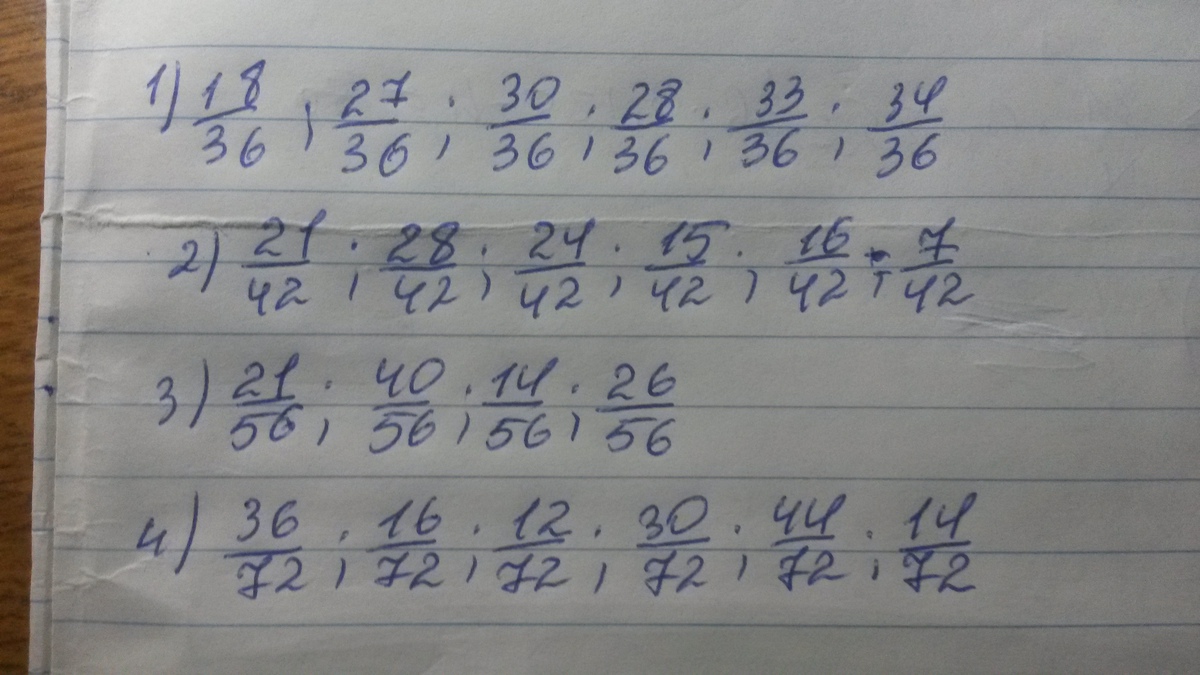 1) 18/36 ; 27/36 ; 30/36 ; 28/36 ; 33/36 ; 34/36
2) 21/42 ; 28/42 ; 24/42 ; 15/42 ; 16/42 ; 7/42
3) 21/56 ; 40/56 ; 14/56 ; 26/56
4) 36/72 ; 16/72 ; 12/72 ; 30/72 ; 44/72 ; 14/72